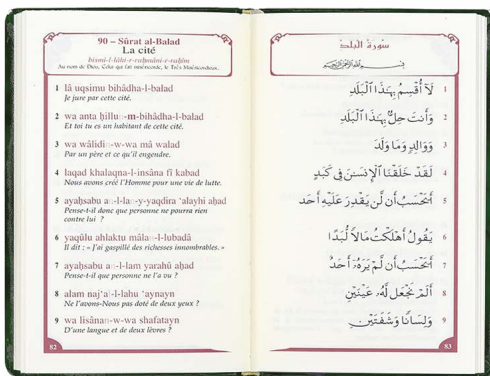 90 – Sûrat al-Balad
La cité
bismi-l-lâhi-r-raḥmâni-r-raḥîm
Au nom de Dieu, Celui qui fait miséricorde, le Très Miséricordieux.
1 lâ uqsimu bihâdha-l-balad
Je jure par cette cité.
2 wa anta ḥillun-m-bihâdha-l-balad
Et toi tu es un habitant de cette cité.
3 wa wâlidin-w-wa mâ walad
Par un père et ce qu'il engendre.
4 laqad khalaqna-l-insâna fî kabad
Nous avons créé l'Homme pour une vie de lutte.
5 ayaḥsabu an-l-lan-y-yaqdira 'alayhi aḥad
Pense-t-il donc que personne ne pourra rien
contre lui ?
6 yaqûlu ahlaktu mâlan-l-lubadâ
Il dit : « J'ai gaspillé des richesses innombrables. »
7 ayaḥsabu an-l-lam yarahû aḥad
Pense-t-il que personne ne l'a vu ?
8 alam naj'al-l-lahu 'aynayn
Ne l'avons-Nous pas doté de deux yeux ?
9 wa lisânan-w-wa shafatayn
D'une langue et de deux lèvres ?
82
سُورَةُ الْبَلَدِ
بِسْمِ اللَّهِ الرَّحْمَٰنِ الرَّحِيمِ
لَآ أُقْسِمُ بِهَٰذَا ٱلْبَلَدِ 1
وَأَنتَ حِلٌّۢ بِهَٰذَا ٱلْبَلَدِ 2
وَوَالِدٍ وَمَا وَلَدَ 3
لَقَدْ خَلَقْنَا ٱلْإِنسَٰنَ فِى كَبَدٍ 4
أَيَحْسَبُ أَن لَّن يَقْدِرَ عَلَيْهِ أَحَدٌ 5
يَقُولُ أَهْلَكْتُ مَالًا لُّبَدًا 6
أَيَحْسَبُ أَن لَّمْ يَرَهُۥٓ أَحَدٌ 7
أَلَمْ نَجْعَل لَّهُۥ عَيْنَيْنِ 8
وَلِسَانًا وَشَفَتَيْنِ 9
83